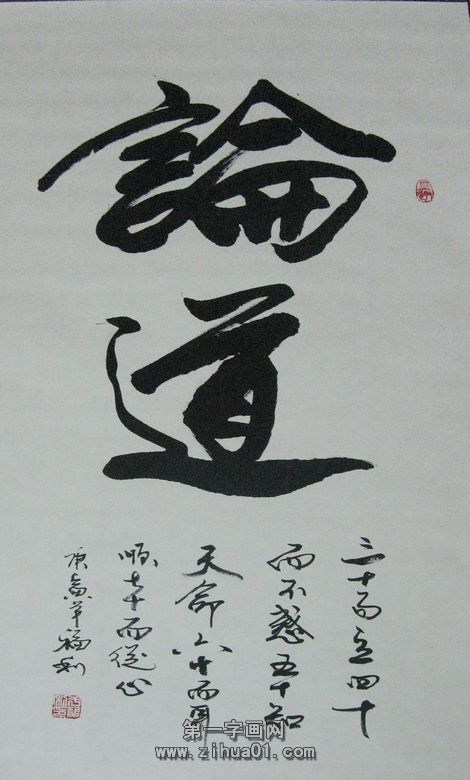 論道
三十而立四十
而不惑五十知
天命六十而耳
順七十而從心
庚寅年福利
第一字画网
www.zihua01.com